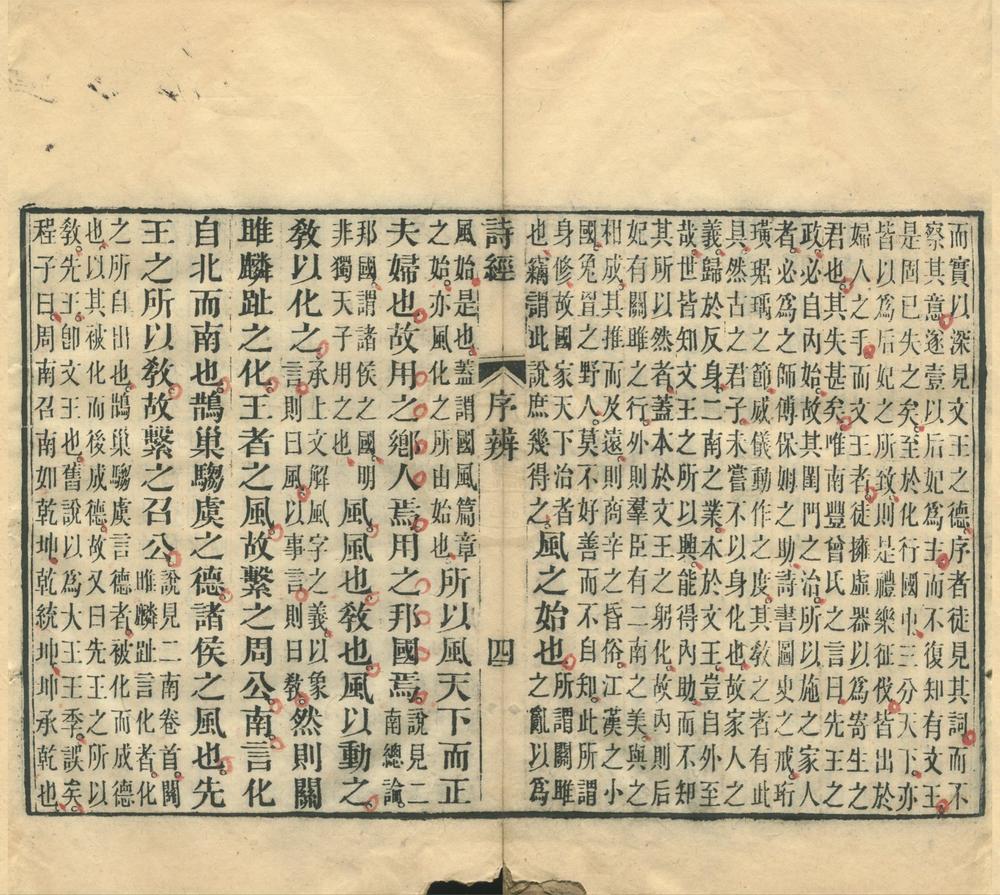 而實以深見文王之德序者徒見其詞而不
察其意遂壹以后妃爲主而不復知有文王
是固已失之矣至於化行國中三分天下亦
皆以爲后妃之所致則是禮樂征伐皆出於
婦人之手而文王者徒擁虛器以爲寄生之
君也其失甚矣唯南豐曾氏之言曰先王之
政必自內始故其閨門之治所以施之家人
者必爲之師傅保姆之助詩書圖史之戒珩
璜琚瑀之節威儀動作之度其敎之者有此
具然古之君子未嘗不以身化也故家人之
義歸於反身二南之業本於文王豈自外至
哉世皆知文王之所以興能得內助而不知
其所以然者蓋本於文王之躬化故內則后
妃有關雎之行外則羣臣有二南之美與之
相成其推而及遠則商辛之昏俗江漢之小
國兔罝之野人莫不好善而不自知此所謂
身修故國家天下治者
也竊謂此說庶幾得之
風之始也
所謂關雎
之亂以爲
詩經 序辨 四
風始是也蓋謂國風篇章
之始亦風化之所由始也
所以風天下而正
夫婦也故用之鄉人焉用之邦國焉
說見二
南總論
邦國謂諸侯之國明
非獨天子用之也
風風也敎也風以動之
敎以化之
承上文解風字之義以象
言則曰風以事言則曰敎
然則關
雎麟趾之化王者之風故繫之周公南言化
自北而南也鵲巢騶虞之德諸侯之風也先
王之所以敎故繫之召公
說見二南卷首關
雎麟趾言化者化
之所自出也鵲巢騶虞言德者被化而成德
也以其被化而後成德故又曰先王之所以
敎先王卽文王也舊說以爲大王王季誤矣
程子曰周南召南如乾坤乾統坤坤承乾也